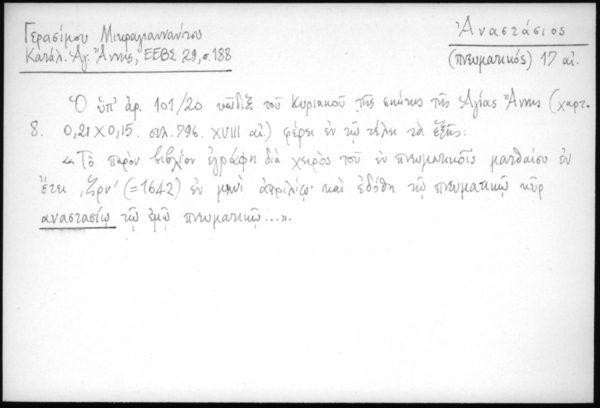 Γερασίμου Μικραγιαννανίτου
Κατάλ. Ἁγ. Ἄννης, ΕΕΒΣ 29, σ. 188
Ἀναστάσιος
(πνευματικός) 17 αἰ.
Ὁ ὑπ' ἀρ. 101/20 κῶδιξ τοῦ Κυριακοῦ τῆς σκήτης τῆς Ἁγίας Ἄννης (χαρτ.
8. 0,21 Χ 0,15. σελ. 796. XVIII αἰ.) φέρει ἐν τῷ τέλει τὰ ἑξῆς:
«Τὸ παρὸν βιβλίον ἐγράφη διὰ χειρὸς τοῦ ἐν πνευματικοῖς ματθαίου ἐν
ἔτει ,ζρν' (=1642) ἐν μηνὶ ἀπριλίῳ· καὶ ἐδόθη τῷ πνευματικῷ κὺρ
αναστασίῳ τῷ ἐμῷ πνευματικῷ...».